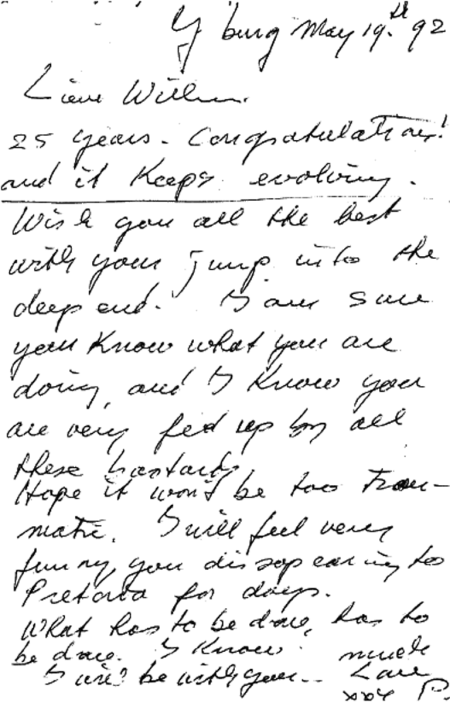 J'burg May 19.th 92
Lieve Willem.
25 years. Congratulations!
and it keeps evolving.
Wish you all the best
with your jump into the
deep end. I am sure
you know what you are
doing, and I know you
are very fed up by all
these bastards
Hope it won't be too trau-
matic. I will feel very
funny, you dissapearing to
Pretoria for days.
What has to be done, has to
be done. I know. much
I will be with you... Love
xxx P.